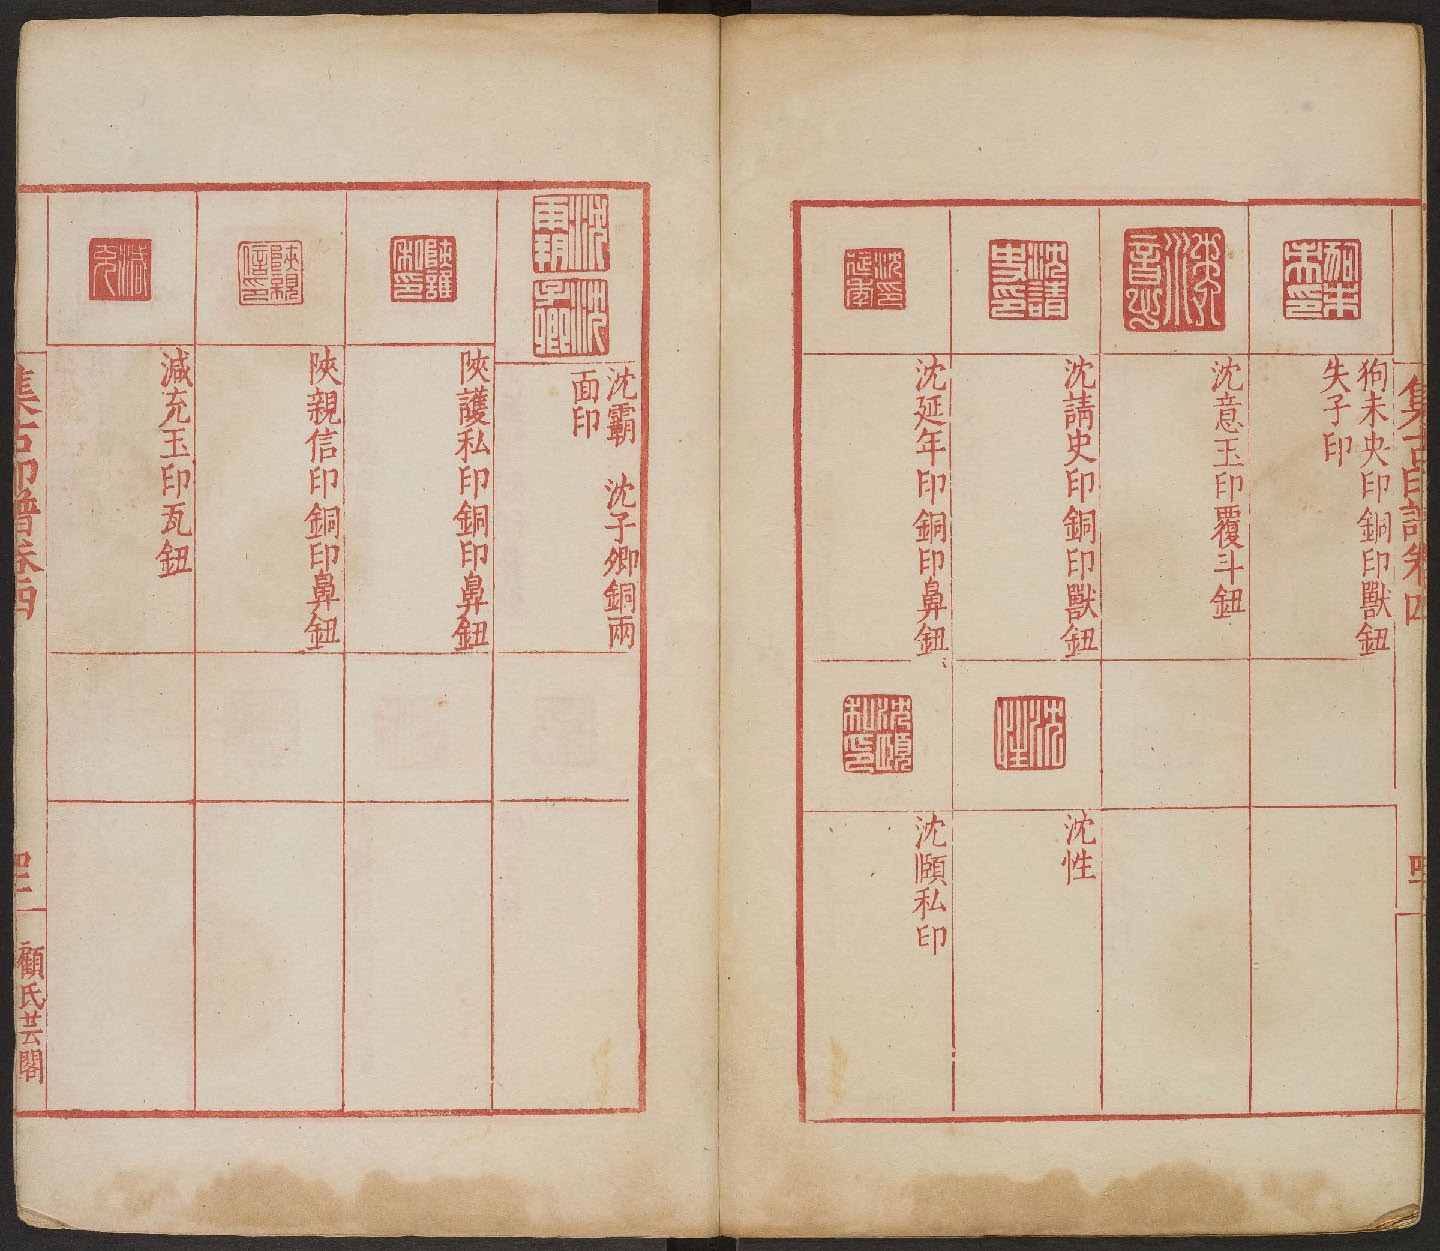 集古印譜卷四
狗未央印銅印獸鈕
失子印
沈意玉印覆斗鈕
沈請史印銅印獸鈕
沈延年印銅印鼻鈕
沈性
沈頤私印
沈霸 沈子卿銅兩
面印
陝護私印銅印鼻鈕
陝親信印銅印鼻鈕
減充玉印瓦鈕
集古印譜卷四
顧氏芸閣